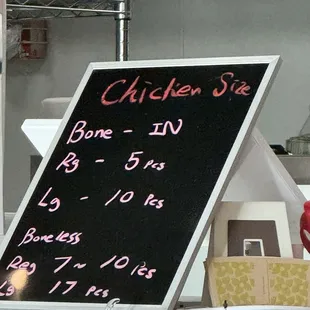 Chicken Size
Bone - IN
Rg - 5 Pcs
Lg - 10 Pcs
Boneless
Reg 7~10 Pcs
Lg 17 Pcs